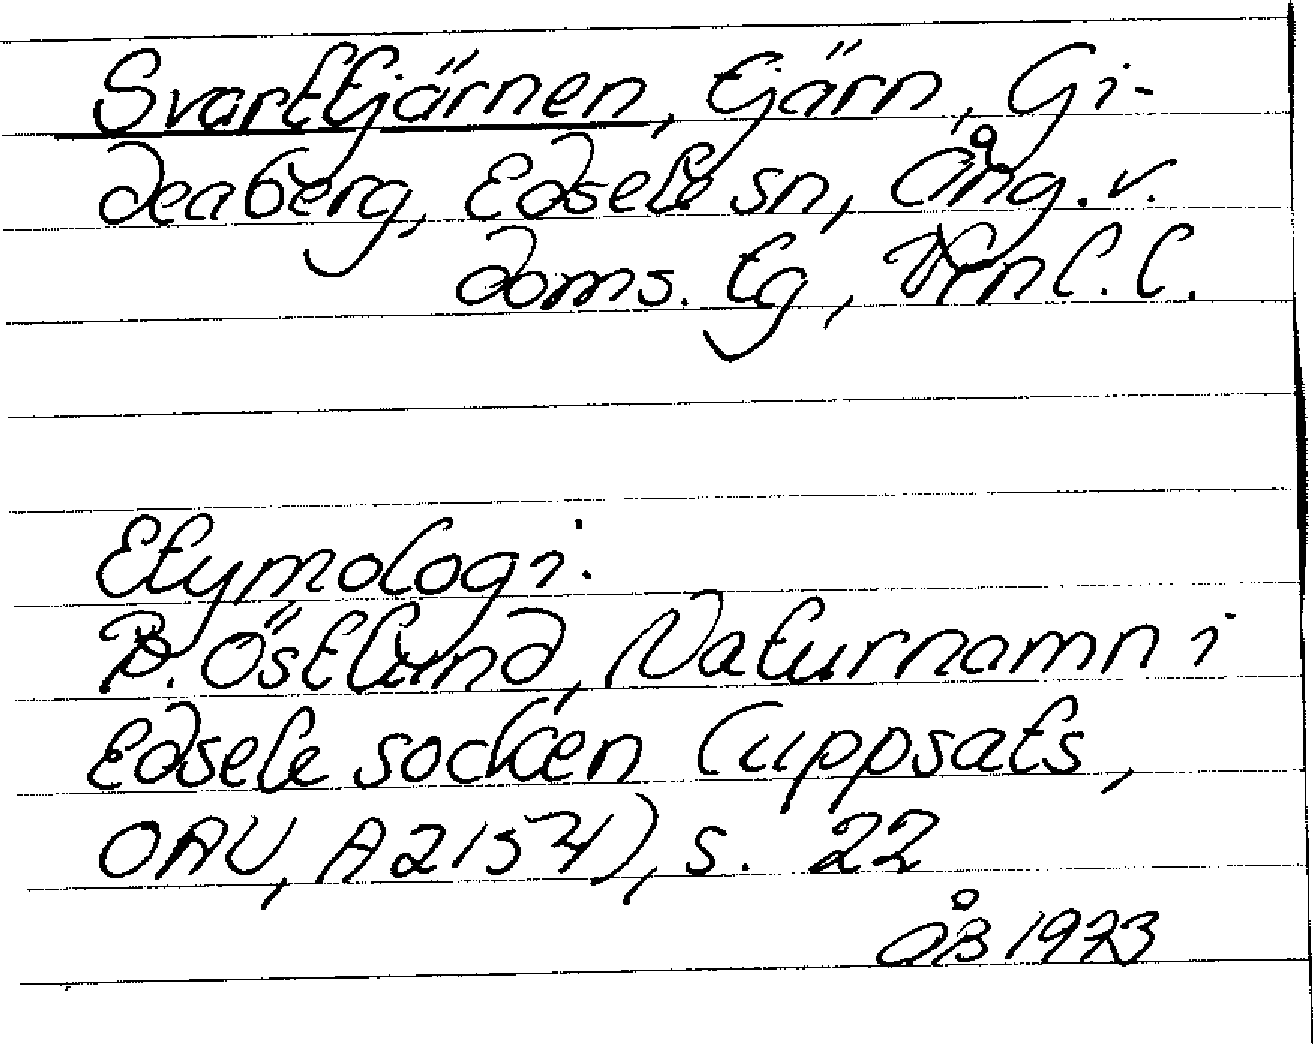 Svarttjärnen, tjärn, Gi-
deaberg, Edsele sn, Ång. v.
doms. tg, Vrnl. l.
Etymologi:
B. Östlund, Naturnamn i
Edsele socken (uppsats,
OAU, A 2154), s. 22
ÅB 1973